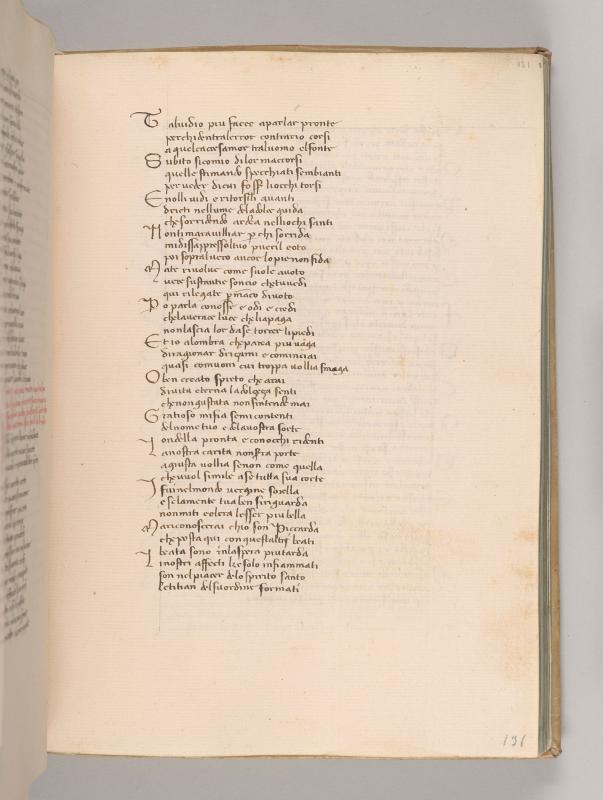 131
Tal vidio piu facce a parlar pronte
perchi dentra lerror contrario corsi
a quel cacese amor tra luomo el fonte
Subito si comio di lor maccorsi
quelle stimando specchiati sembianti
per veder di cui foss li occhi torsi
E nolli vidi e ritorsili avanti
dricti nel lume dela dolce guida
che sorridendo ardea nelli ochi santi
Non ti maravilliar p chi sorrida
mi dissa presso l tuo pueril coto
poi sopra l vero ancor lo pie non fida
Mate rivolve come suole a voto
vere sustantie son cio che tu vedi
qui rilegate p maco di voto
Po parla con esse e odi e credi
che la verace luce che li apaga
non lascia lor da se torcer li piedi
Et io a lombra che parea piu vaga
di ragionar drizami e cominciai
quasi com uom cui troppa vollia smaga
O ben creato spirto che arai
di vita eterna la dolzeza senti
che non gustata non sintende mai
Gratioso mi fia se mi contenti
del nome tuo e dela vostra sorte
ondella pronta e con occhi ridenti
La nostra carita non serra porte
a giusta vollia se non come quella
che vuol simile a se tutta sua corte
I fui nel mondo vergine sorella
e se la mente tua ben si riguarda
non mi ti celera lesser piu bella
Mariconoscerai chio son Piccarda
che posta qui con questaltri beati
beata sono in la spera piu tarda
I nostri affecti che solo infiammati
son nel piacer de lo spirito santo
letitian del su ordine formati
131